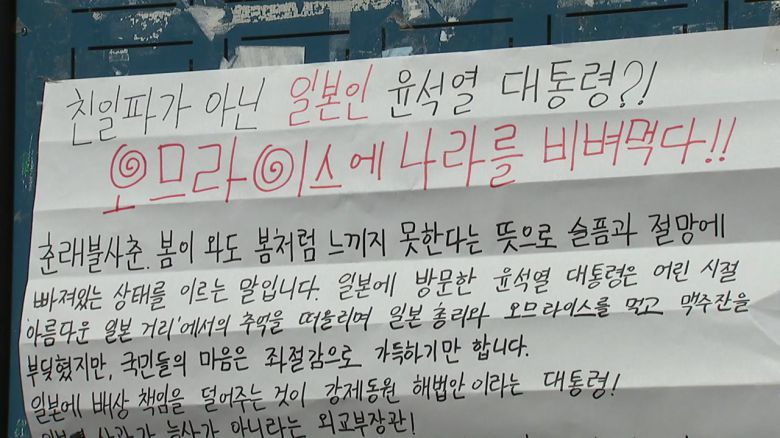 친일파가 아닌 일본인 윤석열 대통령?!
오므라이스에 나라를 비벼먹다!!
춘래불사춘. 봄이 와도 봄처럼 느끼지 못한다는 뜻으로 슬픔과 절망에
빠져있는 상태를 이르는 말입니다. 일본에 방문한 윤석열 대통령은 어린 시절
'아름다운 일본 거리'에서의 추억을 떠올리며 일본 총리와 오므라이스를 먹고 맥주잔을
부딪혔지만, 국민들의 마음은 좌절감으로 가득하기만 합니다.
일본에 배상 책임을 덜어주는 것이 강제동원 해법안이라는 대통령!
아니라는 외교부장관!